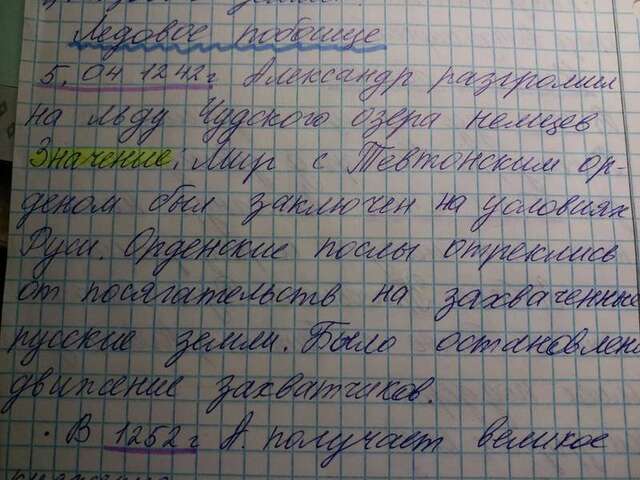 Ледовое побоище
5. 04 1242г Александр разгромил
на льду Чудского озера немцев
Значение: Мир с Тевтонским ор-
деном был заключен на условиях
Руси. Орденские послы отреклись
от посягательств на захваченные
русские земли. Было остановлено
движение захватчиков.
. В 1252г А. получает великое